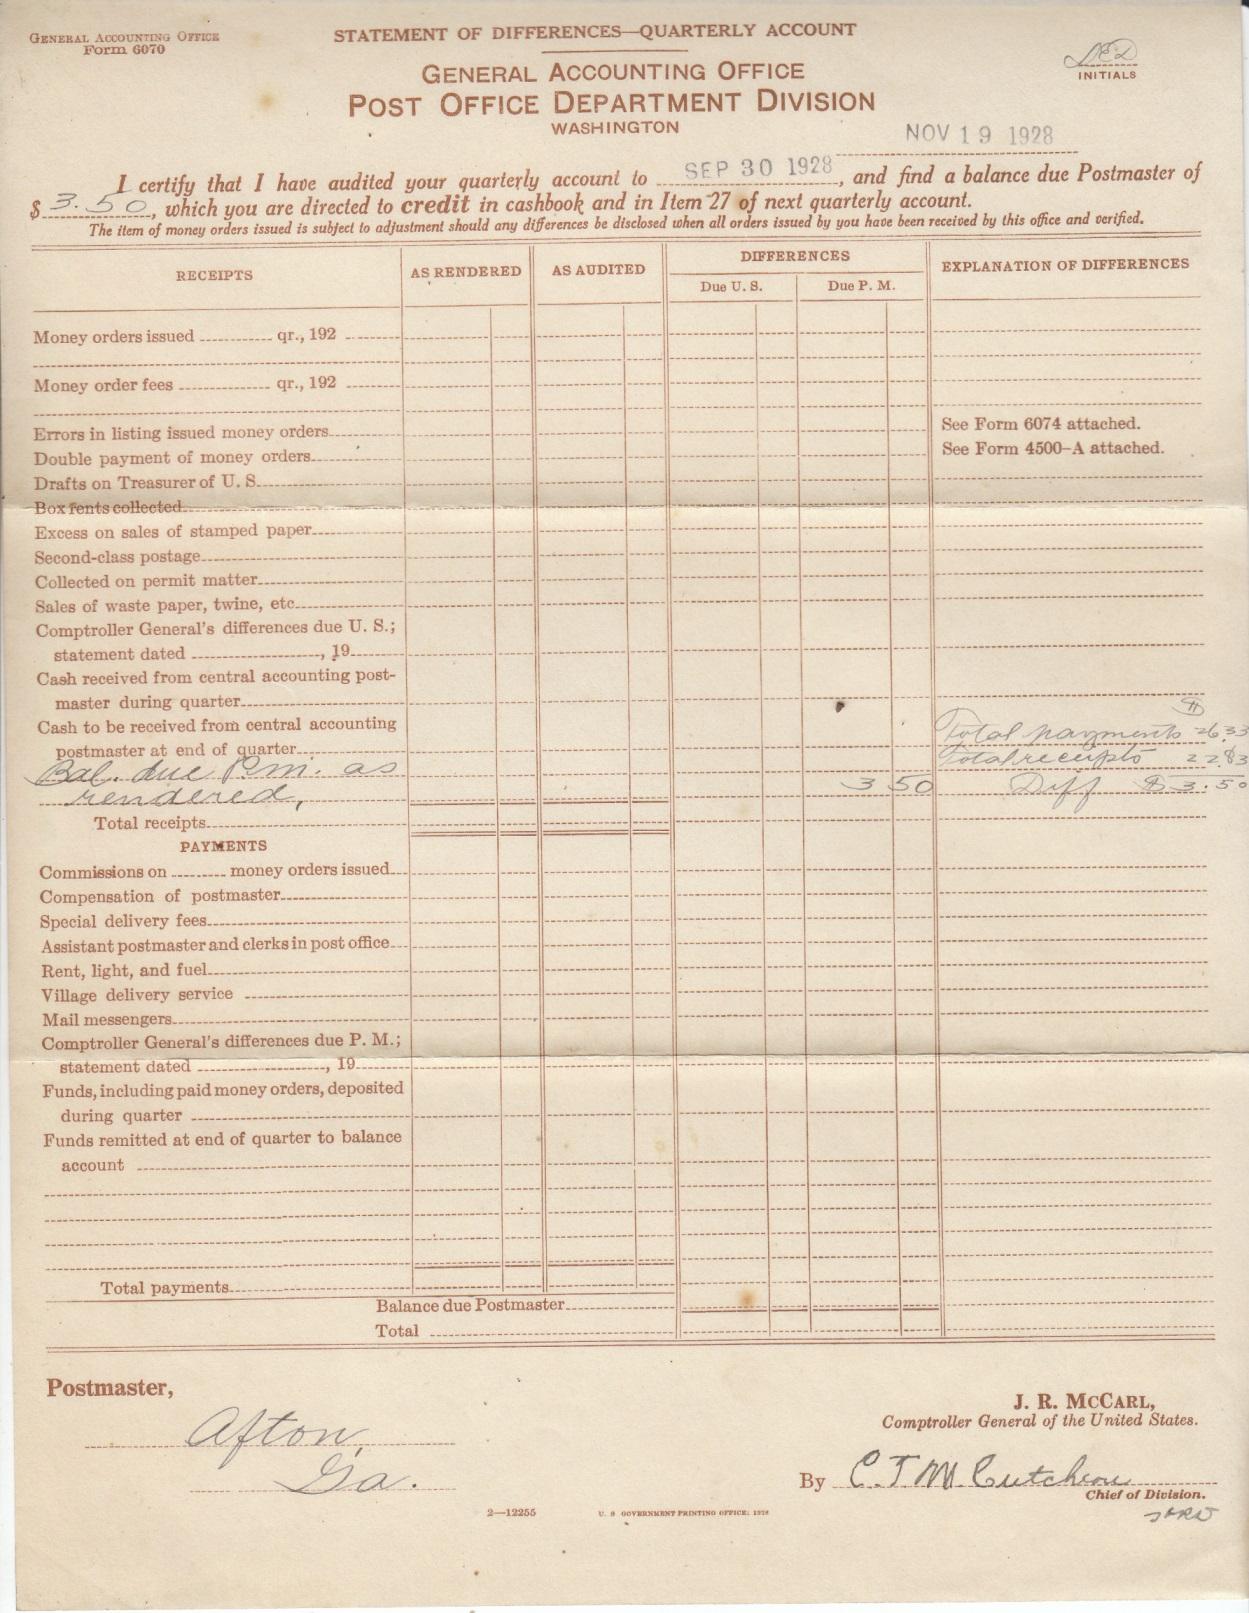 GENERAL ACCOUNTING OFFICE
Form 6070
STATEMENT OF DIFFERENCES—QUARTERLY ACCOUNT
GENERAL ACCOUNTING OFFICE
POST OFFICE DEPARTMENT DIVISION
WASHINGTON
INITIALS
NOV 19 1928
I certify that I have audited your quarterly account to SEP 30 1928, and find a balance due Postmaster of
$ 3.50, which you are directed to credit in cashbook and in Item 27 of next quarterly account.
The item of money orders issued is subject to adjustment should any differences be disclosed when all orders issued by you have been received by this office and verified.
RECEIPTS AS RENDERED AS AUDITED DIFFERENCES EXPLANATION OF DIFFERENCES
Due U. S. Due P. M.
Money orders issued qr., 192
Money order fees qr., 192
Errors in listing issued money orders See Form 6074 attached.
Double payment of money orders See Form 4500-A attached.
Drafts on Treasurer of U. S.
Box rents collected
Excess on sales of stamped paper
Second-class postage
Collected on permit matter
Sales of waste paper, twine, etc
Comptroller General's differences due U. S.;
statement dated , 19
Cash received from central accounting post-
master during quarter
Cash to be received from central accounting
postmaster at end of quarter Total payments 26.33
Bal. due P.m. as Total receipts 22.83
rendered, 3 50 Diff $3.50
Total receipts
PAYMENTS
Commissions on money orders issued
Compensation of postmaster
Special delivery fees
Assistant postmaster and clerks in post office
Rent, light, and fuel
Village delivery service
Mail messengers
Comptroller General's differences due P. M.;
statement dated , 19
Funds, including paid money orders, deposited
during quarter
Funds remitted at end of quarter to balance
account
Total payments
Balance due Postmaster
Total
Postmaster,
Afton,
Ga.
J. R. McCARL,
Comptroller General of the United States.
By C. T. McCutcheon
Chief of Division.
2—12255 U. S. GOVERNMENT PRINTING OFFICE: 1928